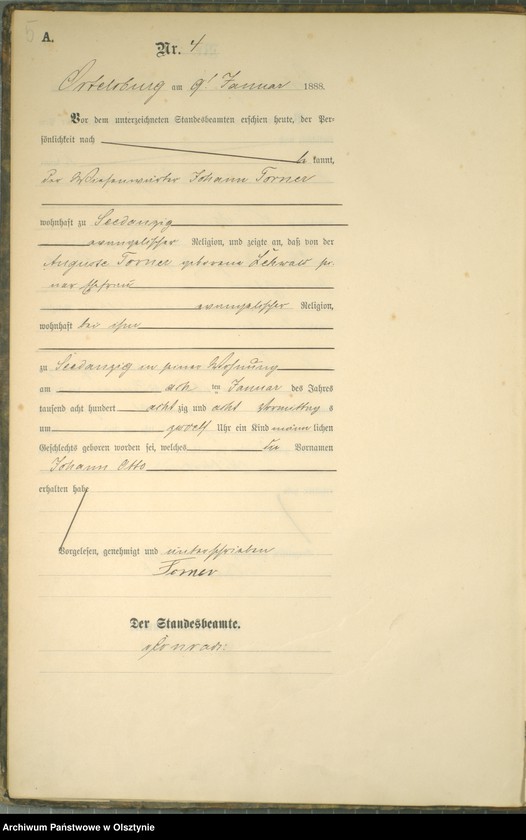 5
A.
Nr. 4
Ortelsburg am 9t Januar 1888.
Vor dem unterzeichneten Standesbeamten erschien heute, der Per-
sönlichkeit nach
be kannt,
der Wiesenwärter Johann Torner
wohnhaft zu Seedanzig
evangelischer Religion, und zeigte an, daß von der
Auguste Torner geborene Lehwald sei-
ner Ehefrau
evangelischer Religion,
wohnhaft bei ihm
zu Seedanzig in seiner Wohnung
am acht ten Januar des Jahres
tausend acht hundert acht zig und acht Vormittag s
um zwölf Uhr ein Kind männ lichen
Geschlechts geboren worden sei, welches die Vornamen
Johann Otto
erhalten habe
Vorgelesen, genehmigt und unterschrieben
Torner
Der Standesbeamte.
Archiwum Państwowe w Olsztynie